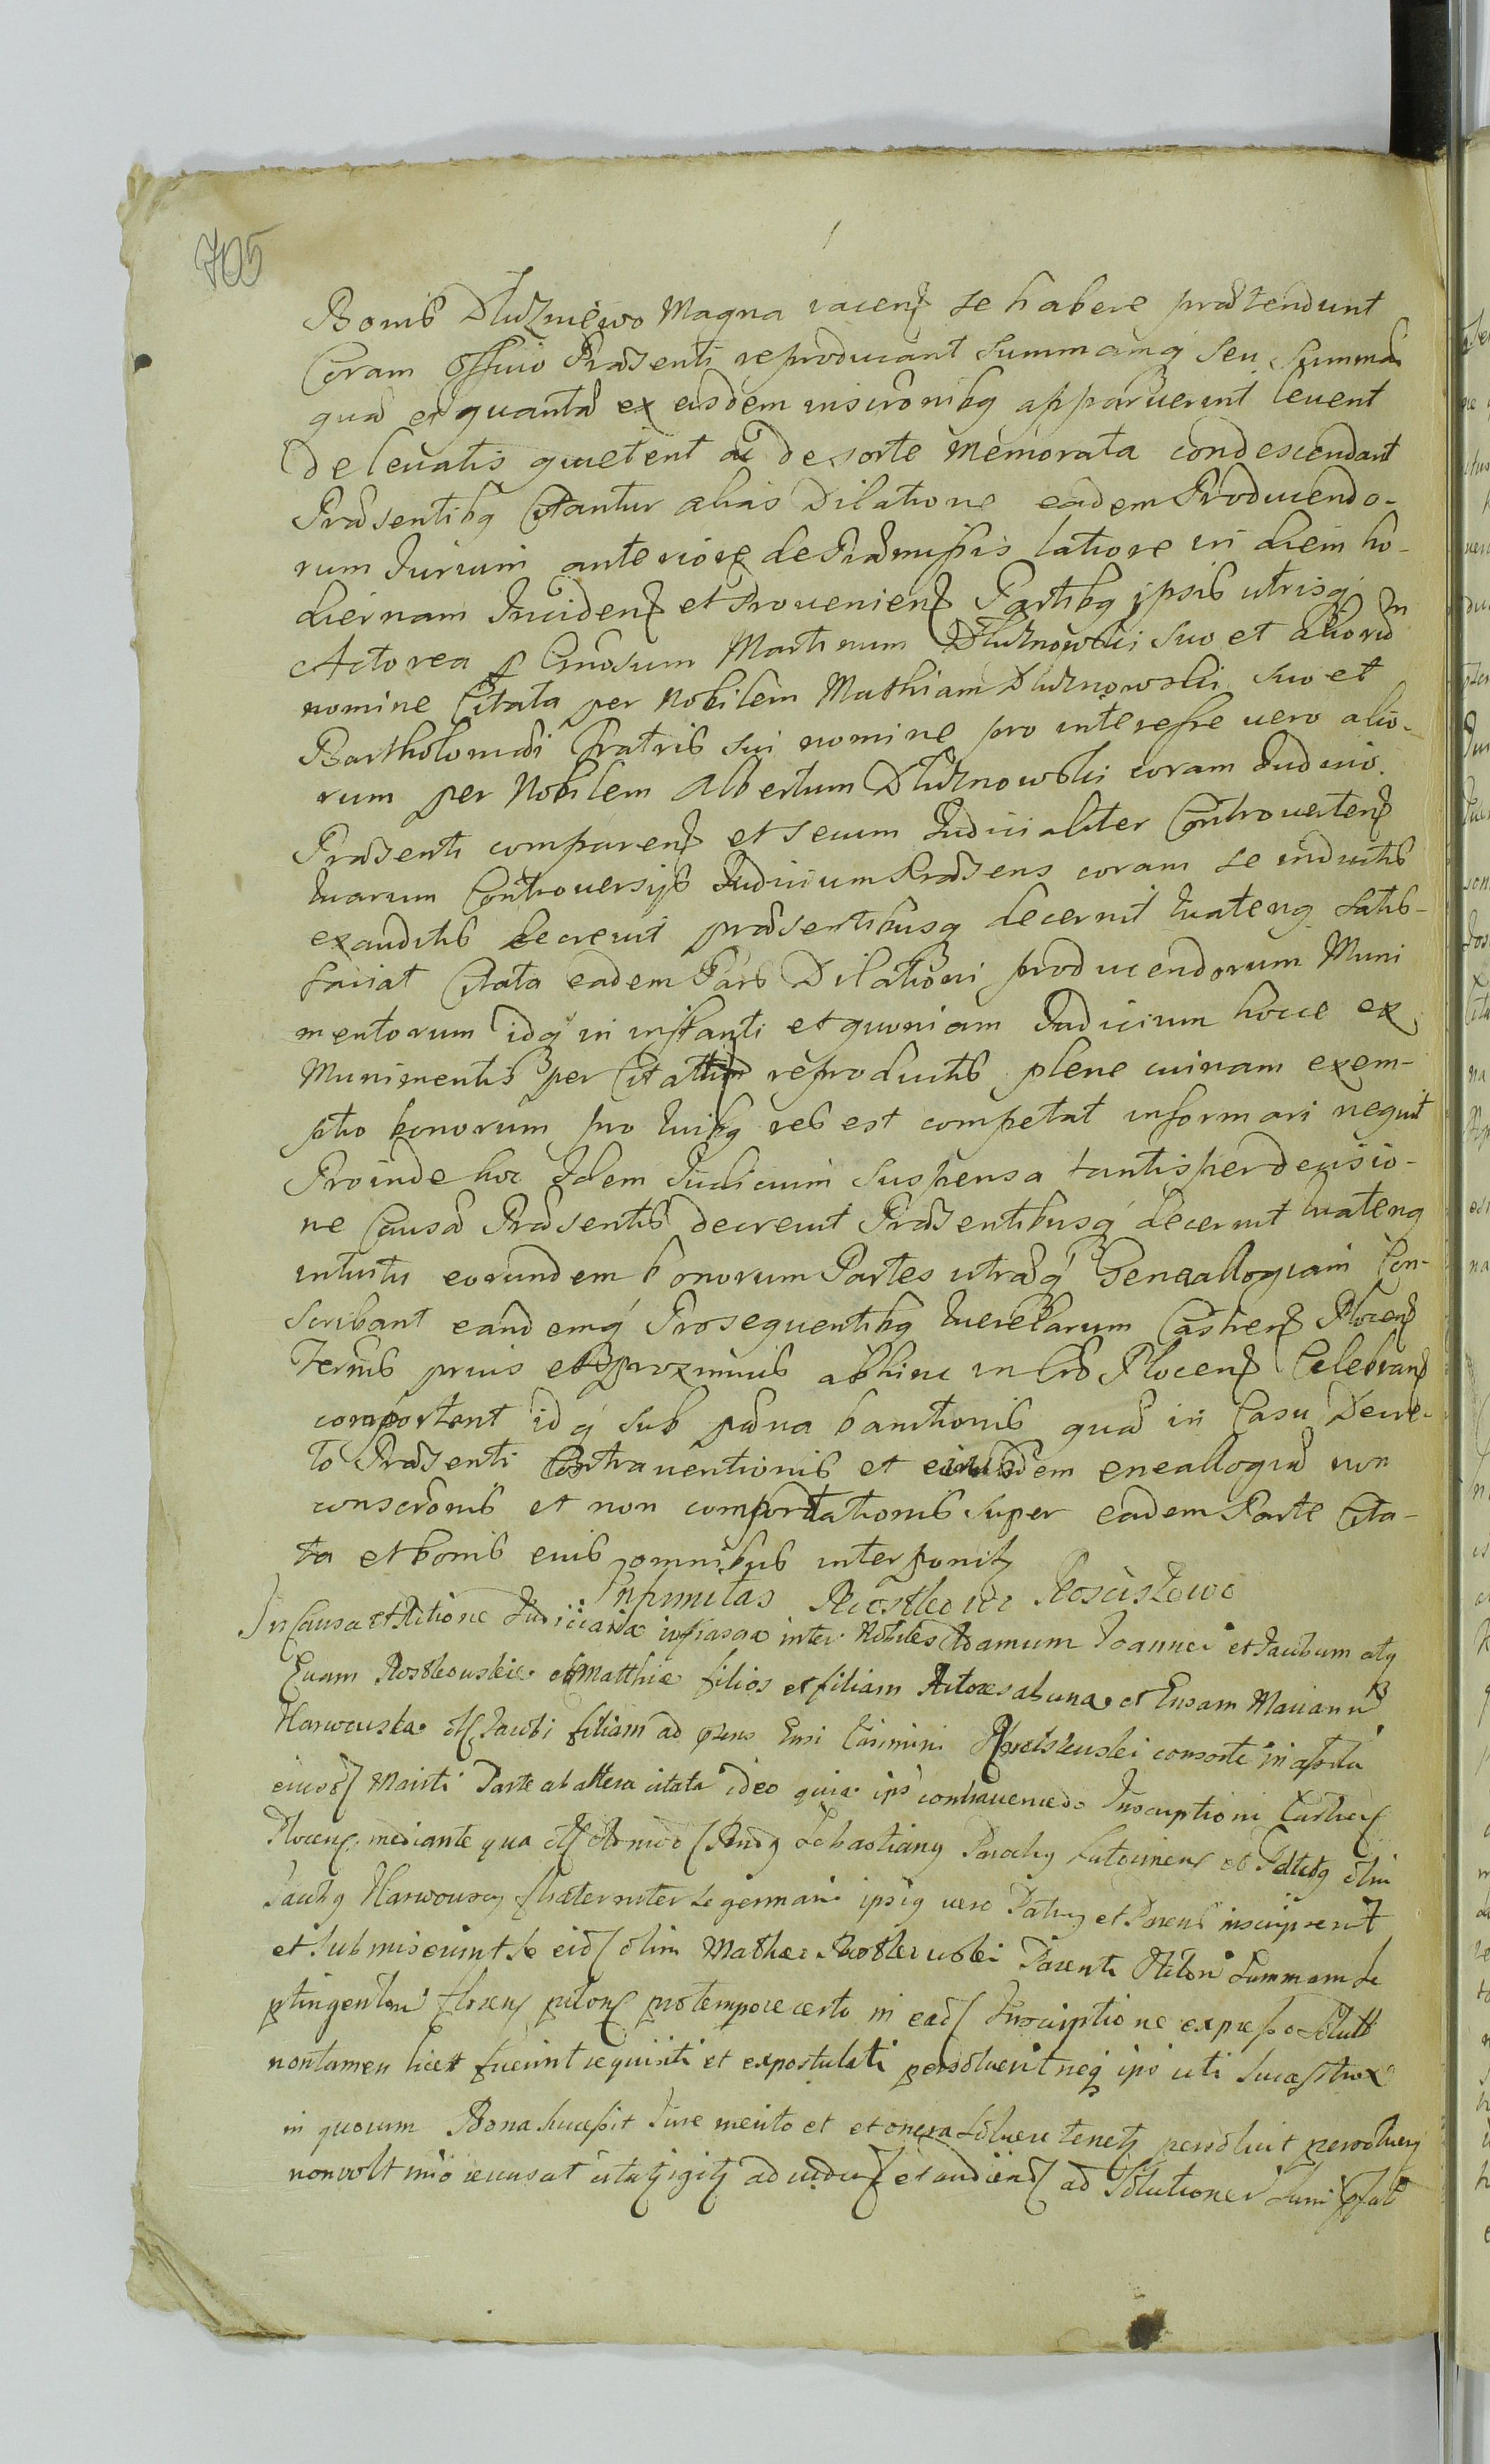 705
Bonis Dłużniewo Magna iacen se habere prætendunt
Coram Officio Præsenti reproducant summamq seu summas
quæ et quantæ ex eisdem inscrõnibq apparuerint levent
de levatis quietent ac de sorte memorata condescendant
Præsentibq Citantur alias Dilatione eadem Producendo-
rum Jurium anteriore de Præmissis latiore in diem ho-
diernam Inciden et Provenien Partibq ipsis utrisq
Actorea p Gnosum Martinum Dłużnowski suo et aliorũ
nomine Citata per Nobilem Mathiam Dłużnowski suo et
Bartholomæi fratris sui nomine pro interesse vero alio-
rum per Nobilem Albertum Dłużnowski coram Judicio
Præsenti comparen et secum Judicialiter Controverten
quarum Controversijs Judicium Præsens coram se inductis
exauditis decrevit præsentibusq decernit quatenq satis-
faciat Citata eadem Pars Dilationi producendorum Muni
mentorum idq in instanti et quoniam Judicium hocce ex
Munimentis per Citatum reproductis plene cuinam exem-
ptio bonorum pro quibq res est competat informari nequit
Proinde hoc Idem Judicium suspensa tantisper decisio-
ne Causæ Præsentis decrevit Præsentibusq decernit quatenq
intuitu eorundem bonorum Partes utræq Geneallogiam Con-
scribant eandemq Prosequentibq querelarum Castren Plocen
Termis primis et proximis abhinc in Crõ Plocen Celebran
comportent idq sub pæna bannitionis quæ in Casu Decre-
to Præsenti Contraventionis et eiusdem eneallogiæ non
conscrõnis et non comportationis super eadem Parte Cita-
ta et bonis eius omnibus interponitz
Impunitas Rostkowo Kosciszewo
In Causa et Actione Judiciaria infrascra inter Nobiles Adamum Joannem et Jacobum atq
Evam Rostkowskie olim Matthiæ filios et filiam Actores ab una et Gnsam Mariannã
Karwowska olim Jacobi filiam ad præns Gnsi Casimiri consorte in assistã
eiusd Mariti Parte ab altera citata ideo quia ipsi contraveniendo Inscriptioni Castren
Plocen mediante qua olim Admod Rndq Sebastianq Parochq et olim
Jacobq Karwowscy fratres inter se germani ipsiq vero Patruq et Parens inscripserunt
et submiserunt se eid olim Mathiæ Rostkowski Parenti Actorũ Summam se
ptingentorũ floren polon pro tempore certo in ead Inscriptione expresso solutt
non tamen licet fuerint requisiti et expostulati persolverunt neq ipsi uti
in quorum Bona successit Jure merito et et onera solvere tenetz persolvit persolvereq
non vult imo recusat citatz igitz ad viden et audien ad solutionem Sum pfat